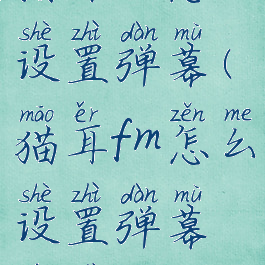 shè zhì dàn mù
设置弹幕(
māo ěr zěn me
猫耳fm怎么
shè zhì dàn mù
设置弹幕